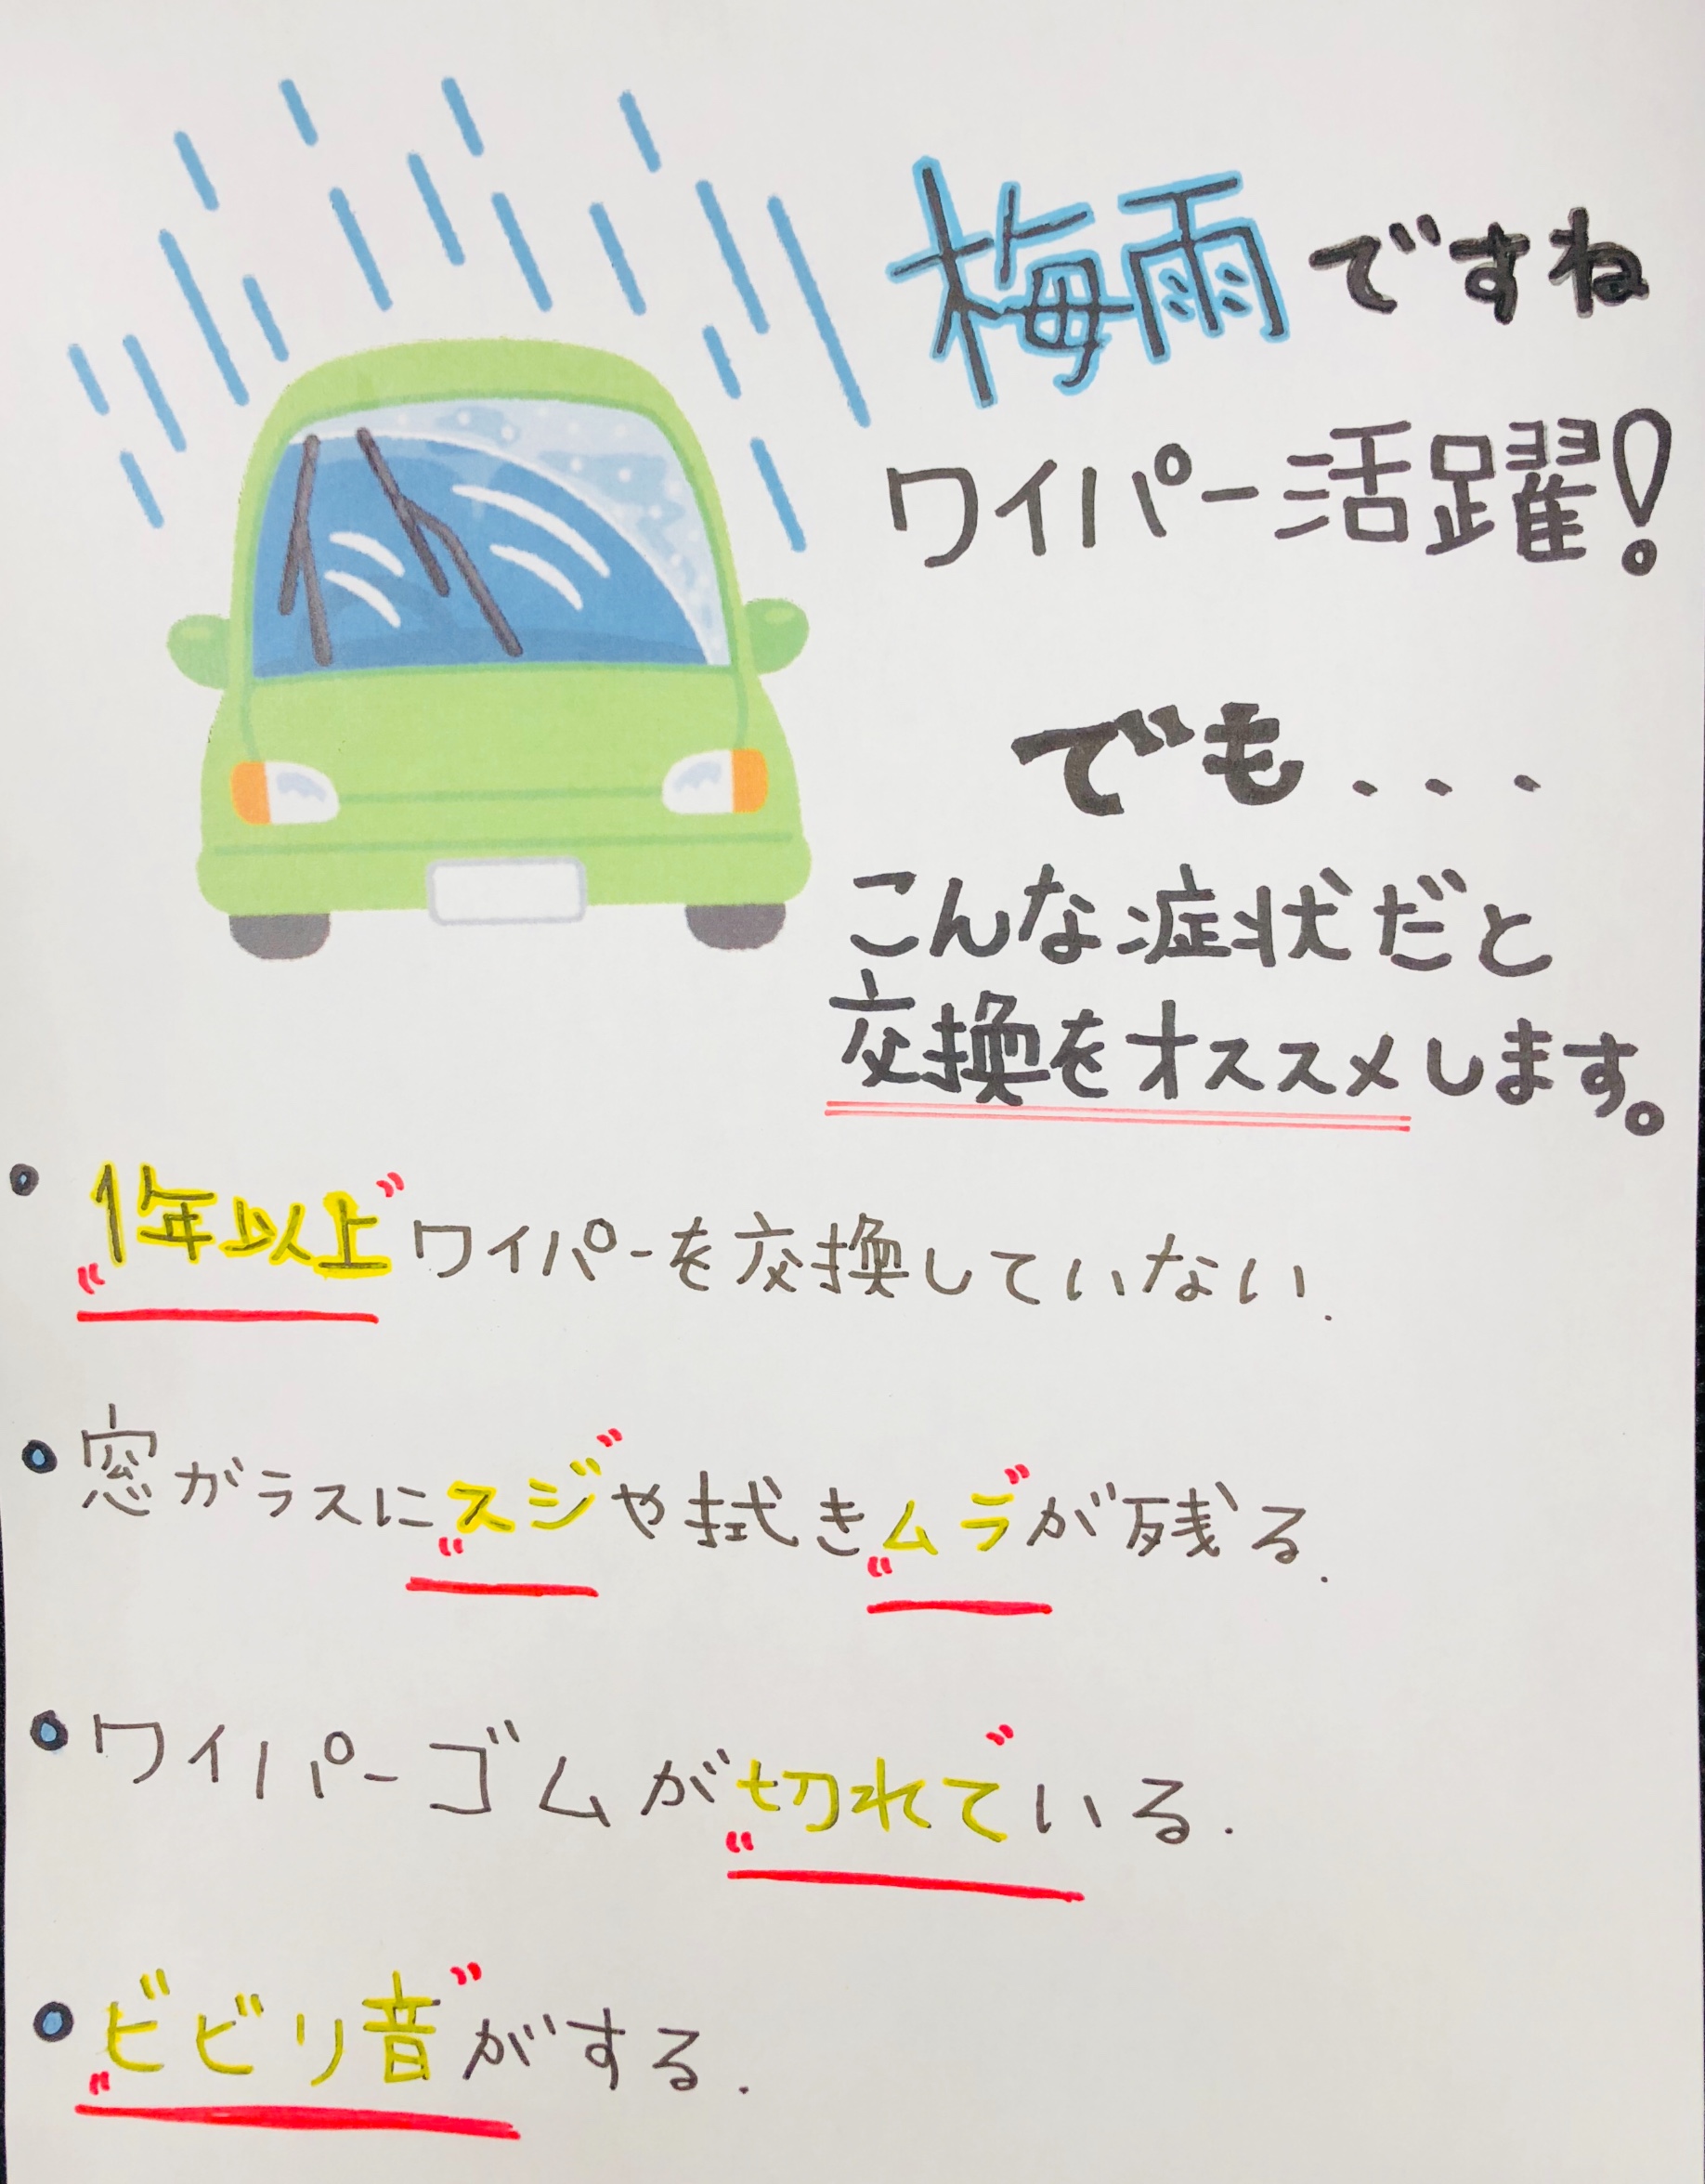 梅雨ですね
ワイパー活躍!
でも...
こんな症状だと
交換をオススメします。
• "1年以上"ワイパーを交換していない.
• 窓ガラスに"スジ"や拭き"ムラ"が残る.
• ワイパーゴムが"切れて"いる.
• "ビビリ音"がする.